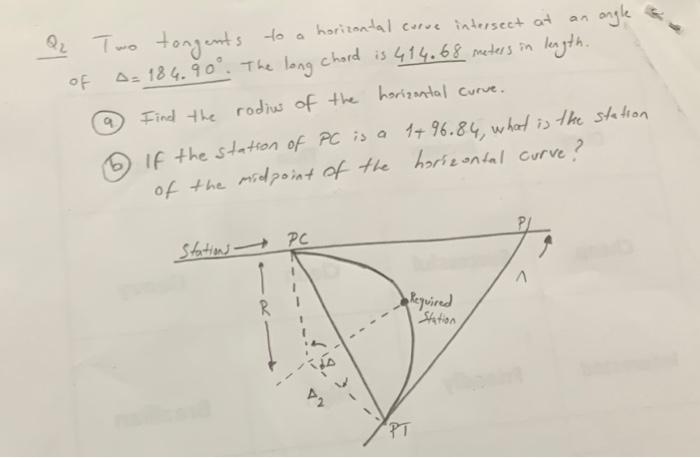 Q2 Two tangents to a horizontal curve intersect at an angle
of Δ= 184.90°. The long chord is 414.68 meters in length.
(a) Find the radius of the horizontal curve.
(b) If the station of PC is a 1+96.84, what is the station
of the midpoint of the horizontal curve?
Stations → PC PI
R Required
Station
Δ
Δ
Δ2
PT